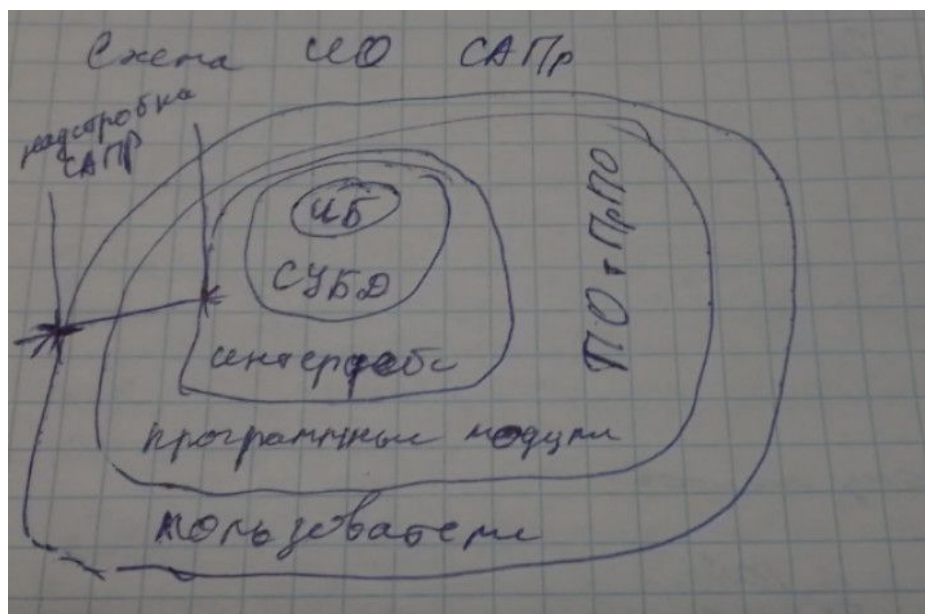 Схема ИО САПр
надстройка
САПР
ИБ
СУБД
интерфейс
ПО + ПрПО
программные модули
пользователи